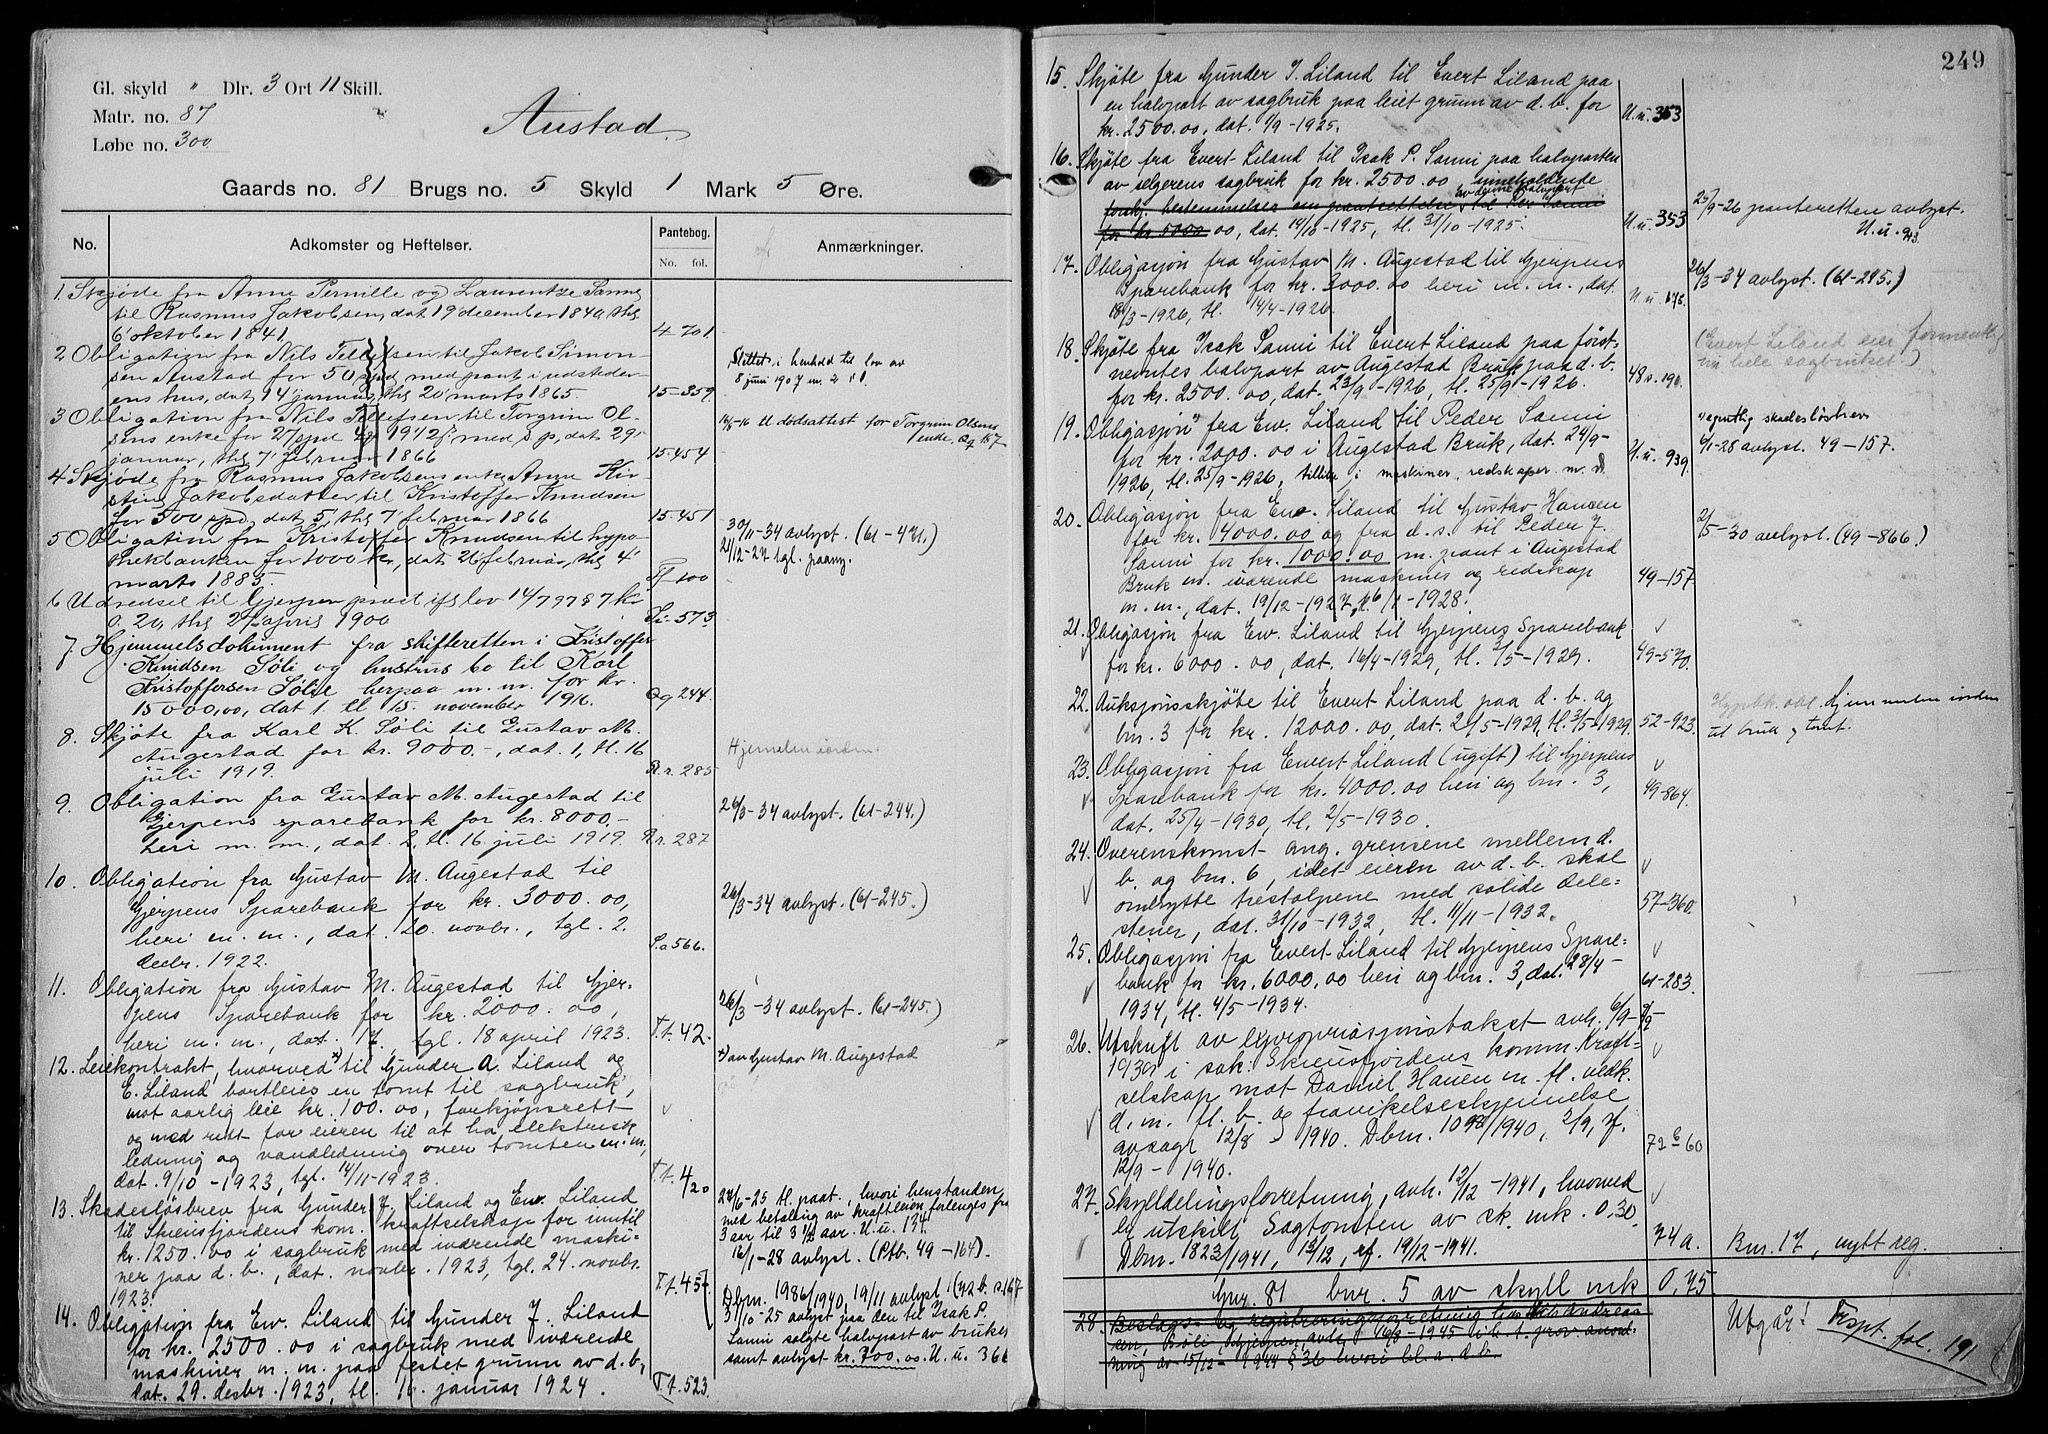 Gl. skyld " Dlr. 3 Ort 11 Skill.
Matr. no. 87
Løbe no. 300
Austad.
Gaards no. 81 Brugs no. 5 Skyld 1 Mark 5 Øre.
No. Adkomster og Heftelser. Pantebog. Anmærkninger.
No. fol.
1 Skjøde fra Anne Pernille og Laurentze Sanne
til Rasmus Jakobsen, dat 19 december 1840, thg
6' oktober 1841. 4 701
2 Obligation fra Nils Tellefsen til Jakob Simon-
sen Austad for 50 spd med pant i udsteder-
ens hus, dat 14' januar, thg 20' marts 1865. 15-359
Slettet i henhold til lov av
8 juni 1907 nr. 2 § 1.
3 Obligation fra Nils Tellefsen til Torgrim Ol-
sens enke for 27 spd med p, dat 29'
januar, thg 7' februar 1866 15-454
U dødsattest for Torgrim Olsens
enke, Qq 157
4 Skjøde fra Rasmus Jakobsens enke Anne Kir-
stine Jakobsdatter til Kristoffer Knudsen
for 500 spd, dat 5', thg 7' februar 1866 15-451
5 Obligation fra Kristoffer Knudsen til hypo-
thekbanken for 1000 kr, dat 26 februar, thg 4'
marts 1885.
30/11-34 avlyst. (61-471.)
21/12-27 tgl. paateg.
6 Udredsel til Gjerpen præst ifg lov 14/7 97 § 7 kr
0. 20, thg 27' april 1900 573
7. Hjemmelsdokument fra skifteretten i Kristoffer
Knudsen Søli og hustrus bo til Karl
Kristoffersen Sølie herpaa m. m. for kr.
15000,00, dat 1. tl 15. november 1916. Qq 244.
8. Skjøte fra Karl K. Søli til Gustav M.
Augestad for kr. 9000.-, dat. 1, tl. 16
juli 1919. R.r. 285
Hjemmelen iorden.
9. Obligation fra Gustav M. Augestad til
Gjerpens sparebank for kr. 8000,-
heri m. m., dat. 2, tl. 16 juli 1919. R.r. 287
26/3-34 avlyst. (61-244.)
10. Obligation fra Gustav M. Augestad til
Gjerpens Sparebank for kr. 3000.00,
heri m. m., dat. 20. novbr., tgl. 2.
decbr. 1922. S.s 566.
26/3-34 avlyst. (61-245.)
11. Obligation fra Gustav M. Augestad til Gjer-
pens Sparebank for kr. 2000.00,
heri m. m., dat. 17., tgl. 18 april 1923. T.t. 42.
26/3-34 avlyst. (61-245.)
12. Leiekontrakt, hvorved x) til Gunder A. Liland og
E. Liland bortleies en tomt til sagbruk,
mot aarlig leie kr. 100.00, forkjøpsrett
og med rett for eieren til at ha elektrisk
ledning og vandledning over tomten m. m.,
dat. 9/10-1923, tgl. 14/11-1923. T.t. 420
x) av Gustav M. Augestad
13. Skadesløsbrev fra Gunder J. Liland og Ew. Liland
til Skiensfjordens kom. kraftselskap for inntil
kr. 1250.00 i sagbruk med iværende maski-
ner paa d. b., dat. novbr. 1923, tgl. 24. novbr.
1923. T.t. 457
24/6-25 tl. paat., hvori henstanden
med betaling av kraftleien forlenges fra
3 aar til 3 1/2 aar. U. u. 134.
16/1-28 avlyst. (Ptb. 49-164).
14. Obligation fra Ew. Liland til Gunder J. Liland
for kr. 2500.00 i sagbruk med iværende
maskiner m. m. paa festet grunn av d. b.,
dat. 29. desbr. 1923, tl. 16. januar 1924. T.t. 523.
Dbnr. 1986/1940, 19/11 avlyst (72 b. s. 167
31/10-25 avlyst paa den til Isak P.
Sanni solgte halvpart av bruket
samt avlyst kr. 700.00. U. u. 366
249
15. Skjøte fra Gunder J. Liland til Evert Liland paa
en halvpart av sagbruk paa leiet grunn av d. b. for
kr. 2500.00, dat. 1/9-1925. U.u. 353
16. Skjøte fra Evert Liland til Isak P. Sanni paa halvparten
av selgerens sagbruk for kr. 2500.00 inneholdende
av denne halvpart
forskj. bestemmelser om pantrettelse til Per Sanni
for kr 5000 00, dat. 14/10-1925, tl. 31/10-1925. U.u. 353
25/9-26 panteretten avlyst.
U.u. 943.
17. Obligasjon fra Gustav M. Augestad til Gjerpens
Sparebank for kr. 3000.00 heri m. m., dat.
18/3-1926, tl. 14/4-1926. U.u. 678.
26/3-34 avlyst. (61-245.)
18. Skjøte fra Isak Sanni til Evert Liland paa først-
nevntes halvpart av Augestad Bruk paa d. b.
for kr. 2500.00, dat. 23/9-1926, tl. 25/9-1926. 48 s. 190.
(Evert Liland eier formentlig
nu hele sagbruket.)
19. "Obligasjon" fra Ew. Liland til Peder Sanni
for kr. 2000.00 i Augestad Bruk, dat. 24/9-
1926, tl. 25/9-1926, tillike i maskiner, redskaper m. v. U.u. 939.
egentlig skadesløsbrev
6/1-28 avlyst. 49-157.
20. Obligasjon fra Ew. Liland til Gustav Hansen
for kr. 4000.00 og fra d. s. til Peder J.
Sanni for kr. 1000.00 m. pant i Augestad
Bruk m. iværende maskiner og redskap
m. m., dat. 19/12-1927, tl. 6/1-1928. 49-157
2/5-30 avlyst. (49-866.)
21. Obligasjon fra Ew. Liland til Gjerpens Sparebank
for kr. 6000.00, dat. 16/4-1929, tl. 3/5-1929. 49-570.
22. Auksjonsskjøte til Evert Liland paa d. b. og
bnr. 3 for kr. 12000.00, dat. 2/5-1929, tl. 3/5-1929. 52-923.
Hypbk. obl. Hjemmelen iorden
til bruk og tomt.
23. Obligasjon fra Evert Liland (ugift) til Gjerpens
Sparebank for kr. 4000.00 heri og bnr. 3,
dat. 25/4-1930, tl. 2/5-1930. 49-864.
24. Overenskomst ang. grensene mellem d.
b. og bnr. 6, idet eieren av d. b. skal
ombytte trestolpene med solide dele-
stener, dat. 31/10-1932, tl. 11/11-1932. 57-360.
25. Obligasjon fra Evert Liland til Gjerpens Spare-
bank for kr. 6000,00 heri og bnr. 3, dat. 28/4-
1934, tl. 4/5-1934. 61-283.
26. Utskrift av expropriasjonstakst avh. 6/9-
1939 i sak: Skiensfjordens komm. Kraft-
selskap mot Daniel Hauen m. fl. vedk.
d. m. fl. b. og fravikelseskjennelse
avsagt 12/8-1940. Dbnr. 1098/1940, 2/9, rf.
12/9-1940. 72 b 60
27. Skylddelingsforretning, avh. 12/12-1941, hvorved
er utskilt Sagtomten av sk. mk. 0,30.
Dbnr. 1823/1941, 13/12, rf. 19/12-1941. 74 a.
Bnr. 17, nytt reg.
Gnr. 81 bnr. 5 av skyll mk 0,75
28. Beslags- og registreringsforretning hos Nils Andreas-
sen, Søli, Gjerpen, avh. 16/3-1945 i h. t. prov. anord-
ning av 15/12-1944 § 36 hvori bl. a. d. b.
Utgår! Trspt. fol. 191